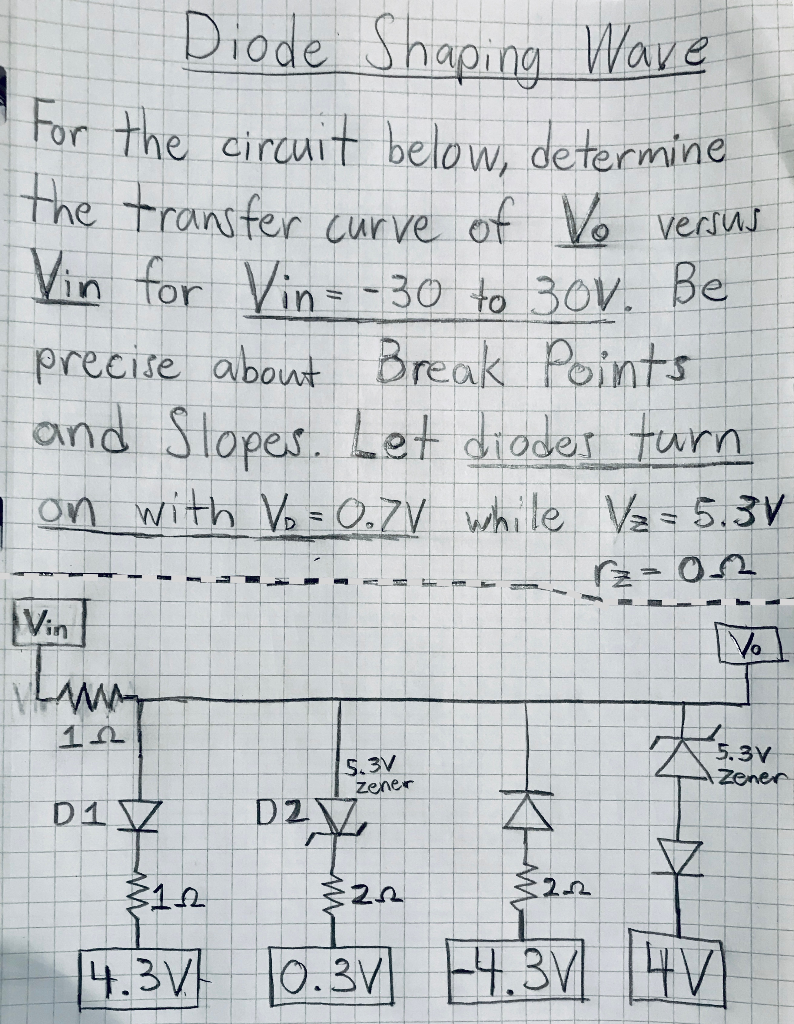 Diode Shaping Wave
For the circuit below, determine
the transfer curve of Vo versus
Vin for Vin = -30 to 30V. Be
precise about Break Points
and Slopes. Let diodes turn
on with VD = 0.7V while Vz = 5.3V
rz = 0Ω
Vin
Vo
1Ω
5.3V
zener
5.3V
zener
D1
D2
1Ω
2Ω
2Ω
4.3V
0.3V
-4.3V
4V